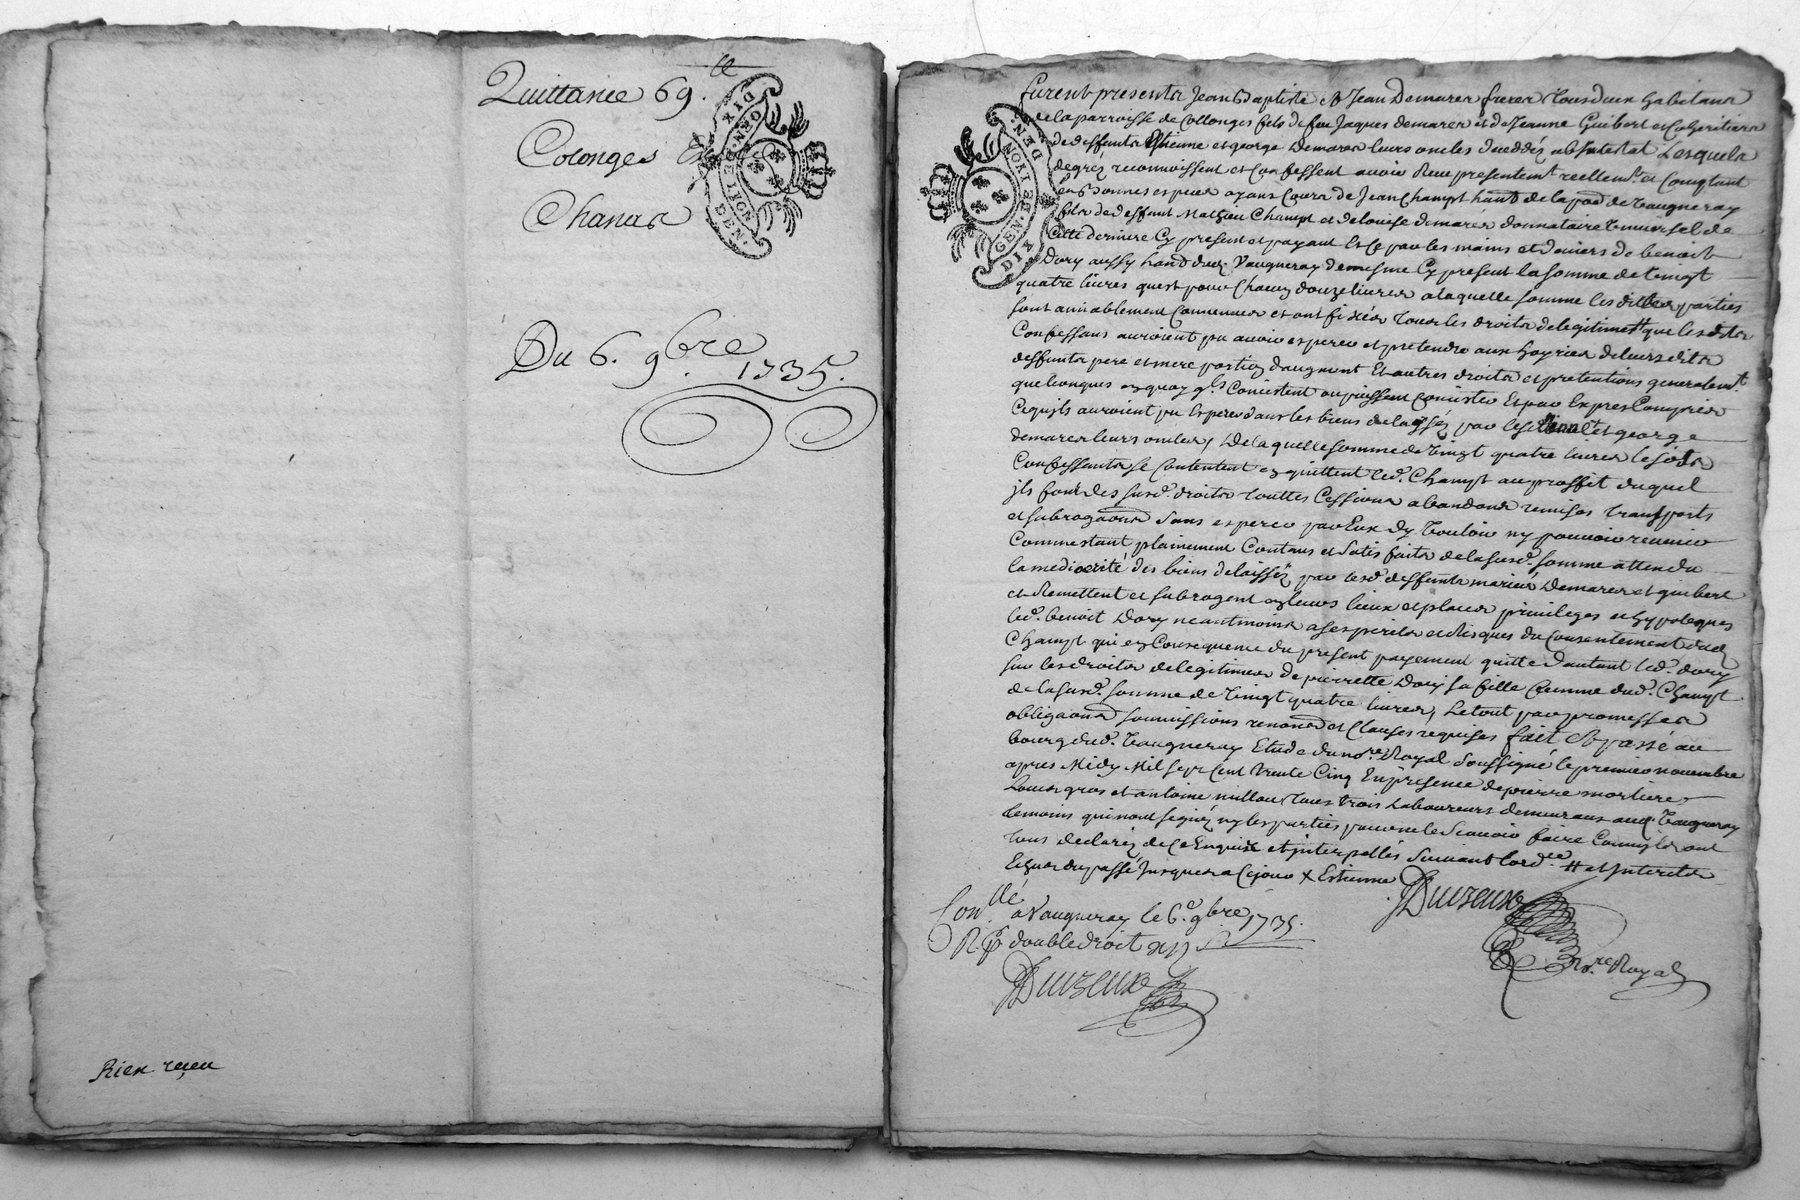 Quittance 69.
Colonges Et
Chanas
GEN. DE LION. DIX DEN.
Du 6. 9bre 1735.
Rien reçeu
furent presents Jean Baptiste et Jean Demares freres tous deux habitans
de la parroisse de Collonges fils de feu Jaques demares et de Jeanne Guibert et coheritiers
de deffunts Estienne et george Demares leurs oncles decedés abintestat Lesquels
de gréz reconnoissent et Confessent avoir Reeu presentemt reellemt. et Comptant
en bonnes especes ayans Cours de Jean Champt habt de la parr de Vaugneray
fils de deffunt Mathieu Champt et de Louise demares donnataire Universel de
Cette derniere Cy present et payant Et Ce par les mains et deniers de benoit
Dory aussy habt dud. Vaugneray de mesme Cy present la somme de Vingt
quatre livres quest pour Chacun douze livres a laquelle somme les dittes parties
sont amiablement Convenues et ont fixées tous les droits de legitimes # que lesdits
Confessans auroient pu avoir esperer et pretendre aux hoyries de leurs dits
deffunts pere et mere portion daugment Et autres droits et pretentions generalemt
quelconques en quoy qls Consistent ou puissent Consister Et par Expres Compries
Ce quils auroient pu Esperer dans les biens delaissés par lesd. et george
demares leurs oncles, De laquelle somme de Vingt quatre livres lesdts
Confessants se Contentent en quittent led. Champt au proffit duquel
jls font des susd. droits touttes Cessions abandons remises transports
et subrogaons Sans esperer par Eux dy Vouloir ny pouvoir revenir
Comme stant plainement Contans et Satisfaits de la susd. somme attendu
la mediocrité des biens delaissés par lesd. deffunts mariés Demares et guibert
et Remettent et subrogent en leurs lieux et places privileges et hypoteques
led. benoit Dory neantmoins a ses perils et Risques du Consentement dud.
Champt qui en Consequence du present payement quitte d'autant led. dory
sur les droits de legitimes de pierrette Dory sa fille femme dud. Champt
de la susd. somme de Vingt quatre livres, Le tout par promesses
obligaons soumissions renonons et Clauses requises fait Et passé au
bourg dud. Vaugneray Etude du nore Royal Soussigné le premier novembre
apres Midy Mil sept Cent trente Cinq En presence de pierre mortier
Louis gros et antoine millou tous trois Laboureurs demeurans aud. Vaugneray
temoins qui nont signéz ny les parties pour ne le Scavoir faire Comme ils ont
tous declaréz de Ce Enquis et jnterpellés Suivant lordce. # et jnterets
Echus du passé jusques a Cejour x Estienne
Duizeux
Nore Royal
Conllé a Vaugneray le 6e. 9bre 1735.
R. double droit
Duizeux
GEN. DE LYON. DIX DEN.